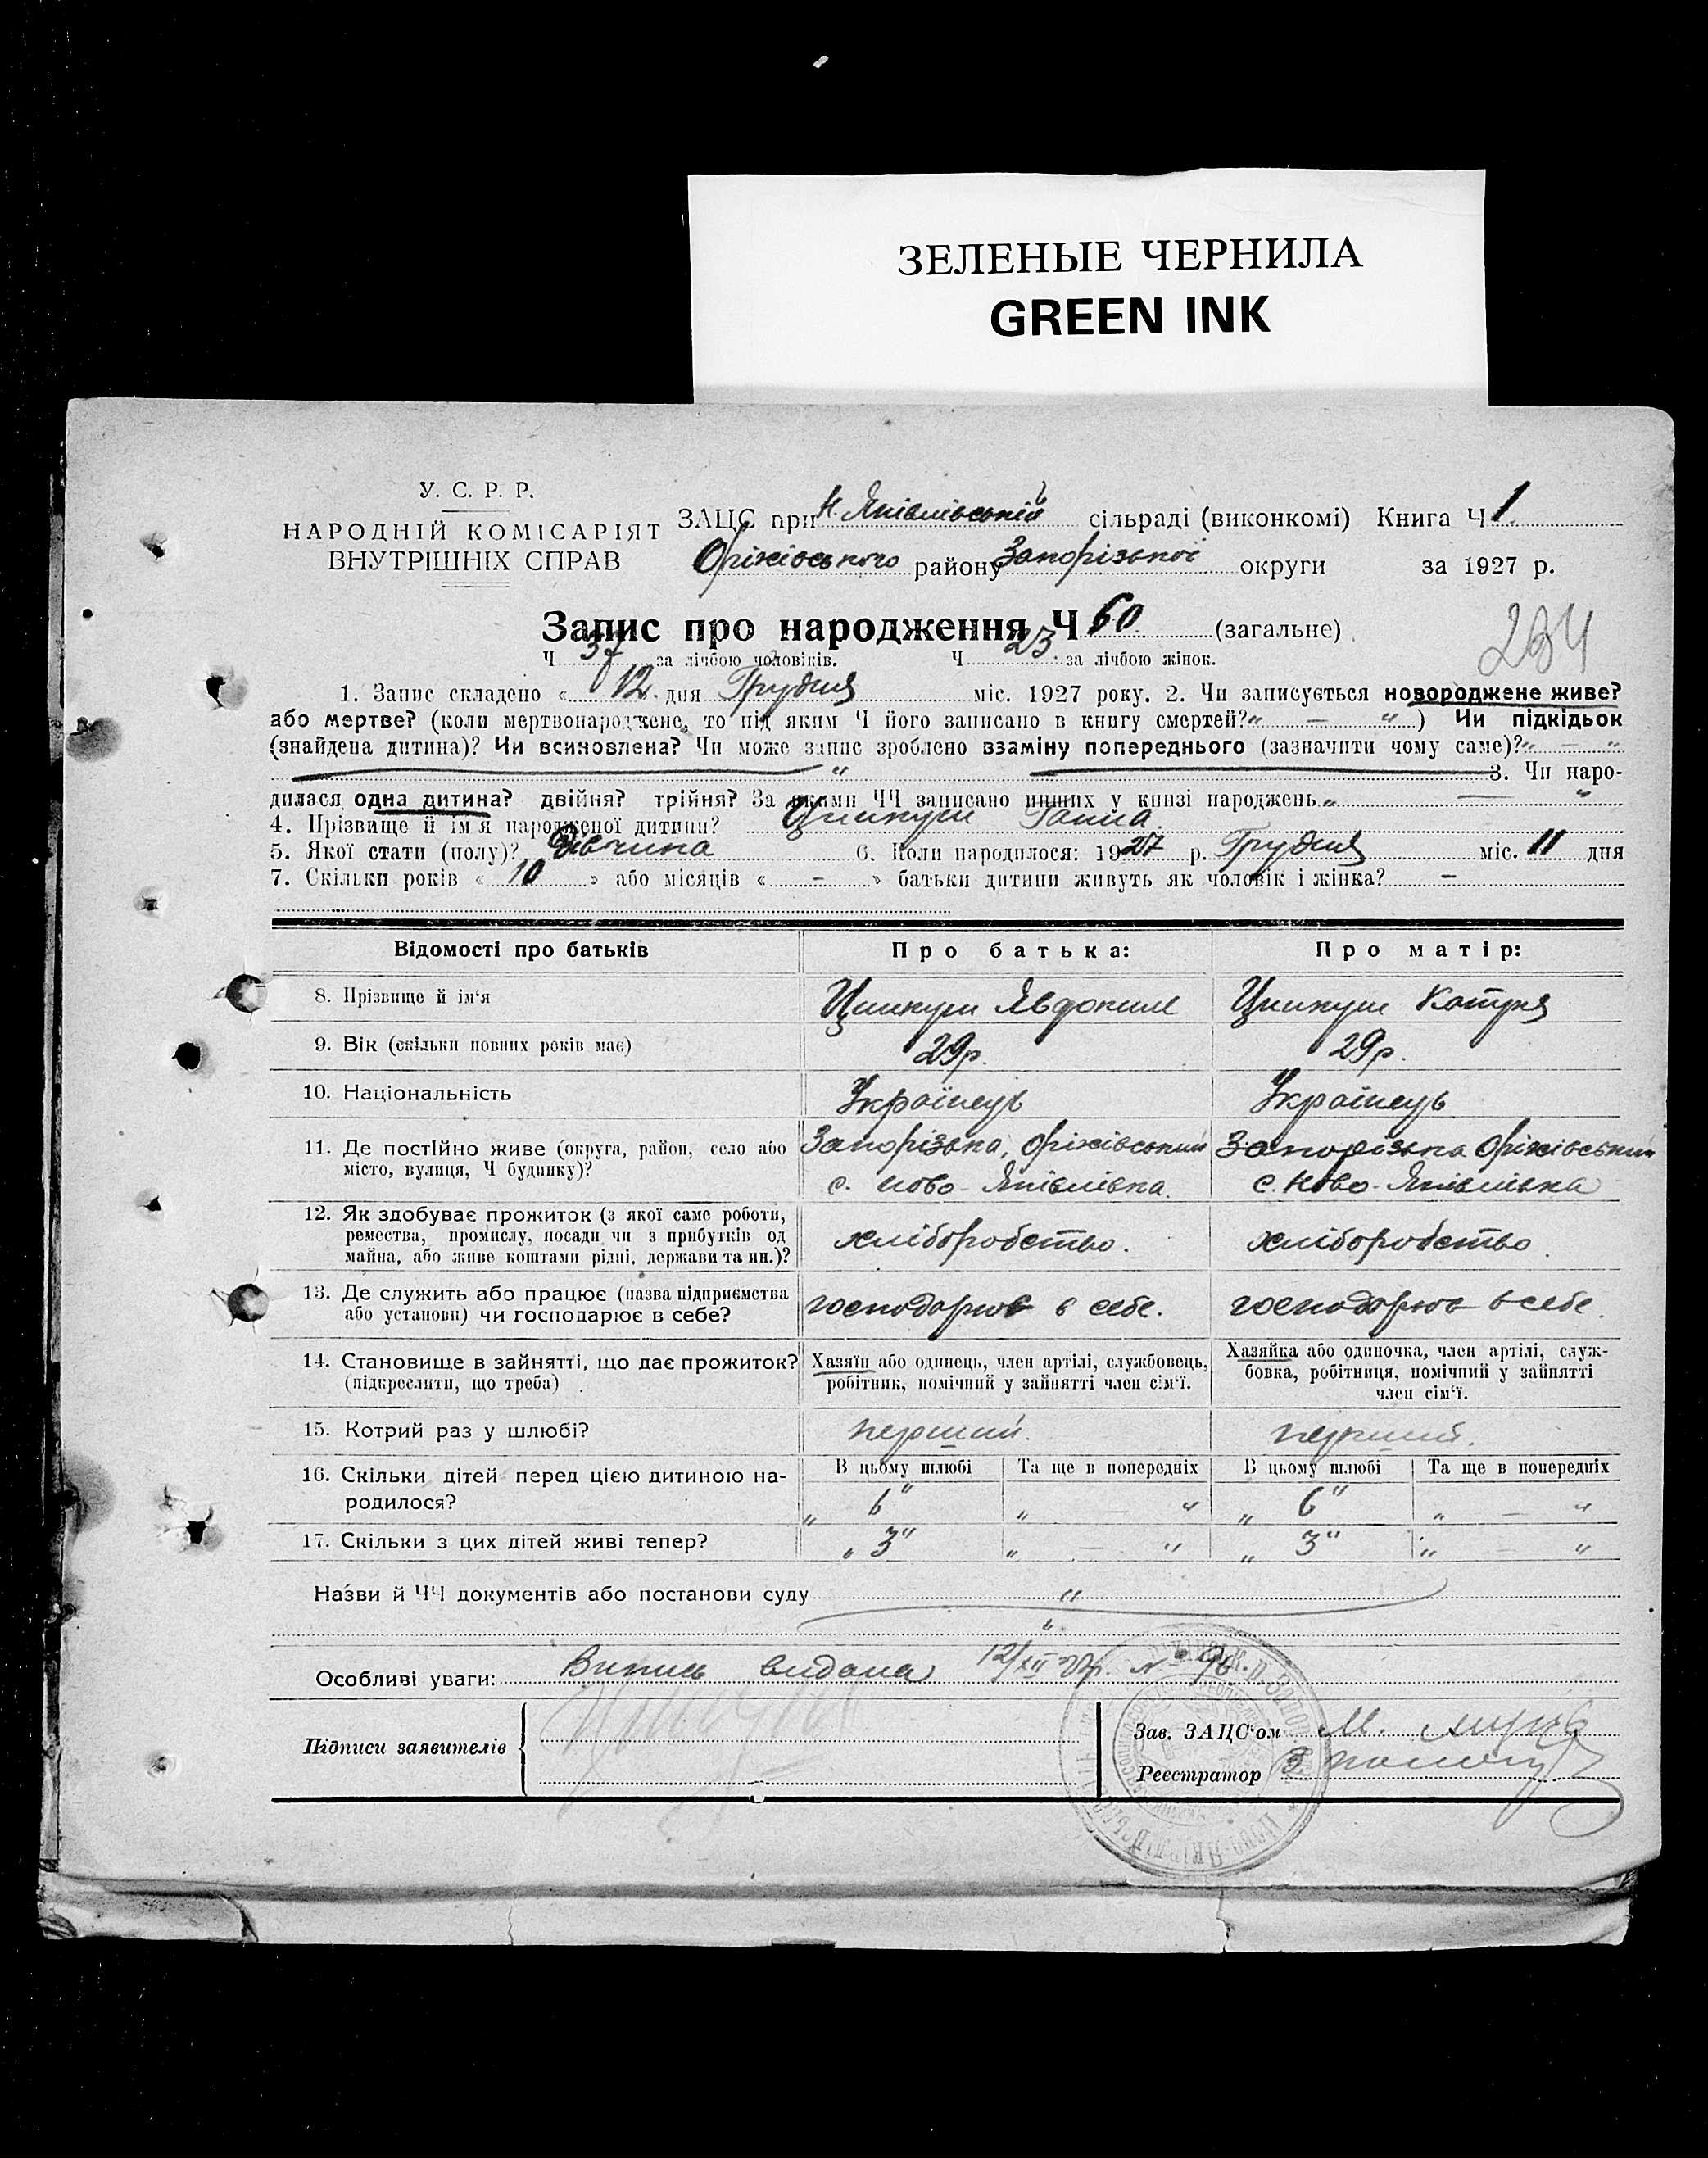 ЗЕЛЕНЫЕ ЧЕРНИЛА
GREEN INK
У. С. Р. Р.
НАРОДНІЙ КОМІСАРІЯТ
ВНУТРІШНІХ СПРАВ
ЗАЦС при Н Яківлівській сільраді (виконкомі) Книга Ч 1.
Оріхівського району Запорізької округи за 1927 р.
Запис про народження Ч 60. (загальне)
234
Ч 37 за лічбою чоловіків. Ч 23. за лічбою жінок.
1. Запис складено « 12. дня Грудня міс. 1927 року. 2. Чи записується новороджене живе?
або мертве? (коли мертвонароджене, то під яким Ч його записано в книгу смертей? " — " ) Чи підкідьок
(знайдена дитина)? Чи всиновлена? Чи може запис зроблено взаміну попереднього (зазначити чому саме)? " — "
" 3. Чи наро-
дилася одна дитина? двійня? трійня? За якими ЧЧ записано инших у книзі народжень " — "
4. Прізвище й ім'я народженої дитини? Ганна
5. Якої стати (полу)? Дівчина 6. Коли народилося: 1927 р. Грудня міс. 11 дня
7. Скільки років « 10 » або місяців « – » батьки дитини живуть як чоловік і жінка? –
Відомості про батьків Про батька: Про матір:
8. Прізвище й ім'я Явдоким
9. Вік (скільки повних років має) 29р. 29р.
10. Національність Українець Українець
11. Де постійно живе (округа, район, село або Запорізька, Оріхівський Запорізька Оріхівський
місто, вулиця, Ч будинку)? с. Ново-Яківлівка с. Ново-Яківлівка
12. Як здобуває прожиток (з якої саме роботи,
ремества, промислу, посади чи з прибутків од хліборобство. хліборобство.
майна, або живе коштами рідні, держави та ин.)?
13. Де служить або працює (назва підприємства
або установи) чи господарює в себе? господарює в себе. господарює в себе.
14. Становище в зайнятті, що дає прожиток? Хазяїн або одинець, член артілі, службовець, Хазяйка або одиночка, член артілі, служ-
(підкреслити, що треба) робітник, помічний у зайнятті член сім'ї. бовка, робітниця, помічний у зайнятті
член сім'ї.
15. Котрий раз у шлюбі? перший. перший.
16. Скільки дітей перед цією дитиною на- В цьому шлюбі Та ще в попередніх В цьому шлюбі Та ще в попередніх
родилося? " 6 " " — " " 6 " " — "
17. Скільки з цих дітей живі тепер? " 3 " " — " " 3 " " — "
Назви й ЧЧ документів або постанови суду "
"
Особливі уваги: Випись видана 12/XII 27р. № 96
Підписи заявителів
Зав. ЗАЦС'ом М.
Реєстратор